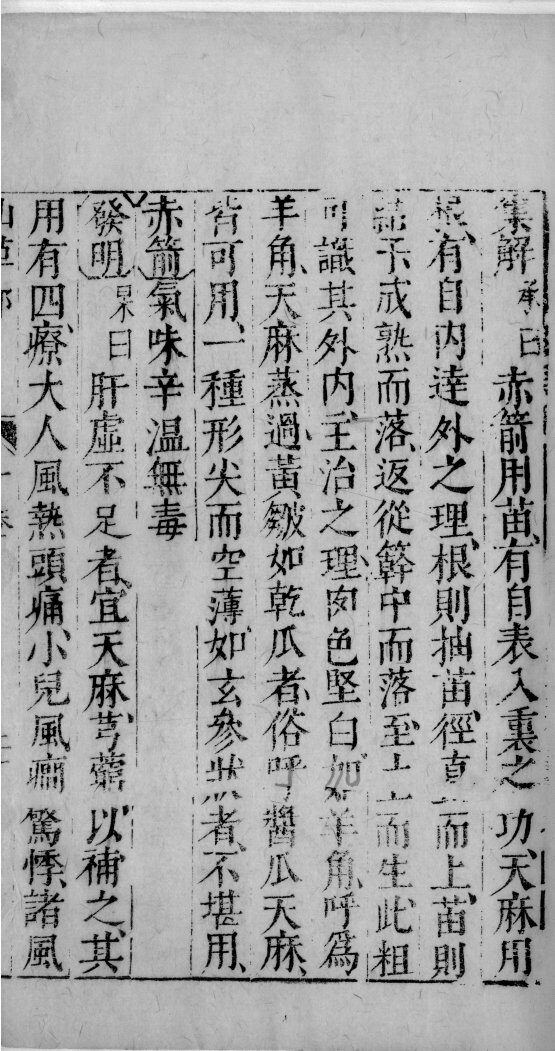 集解承曰赤箭用苗、有自表入裏之功、天麻用
根、有自内達外之理、根則抽苗、徑直而上、苗則
結子成熟而落、返從簳中而落、至土而生、此粗
可識其外内主治之理、肉色堅白如羊角、呼爲
羊角、天麻蒸過、黃皺如乾瓜者、俗呼醬瓜天麻、
皆可用、一種形尖而空薄、如玄參狀者、不堪用、
赤箭氣味辛温無毒
發明杲曰肝虛不足者、宜天麻芎藭以補之、其
用有四、療大人風熱頭痛、小兒風癎驚悸、諸風
山草部